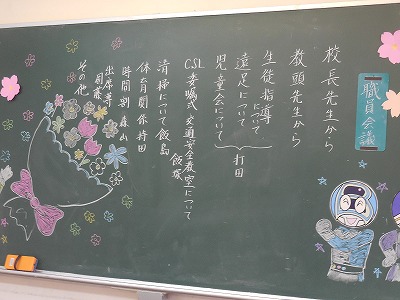 職員会議
校長先生から
教頭先生から
生徒指導について
遠足について
児童会について
打田
CSL委嘱式 交通安全教室について
飯塚
清掃について 飯島
体育関係 持田
時間割 森山
出席等
その他